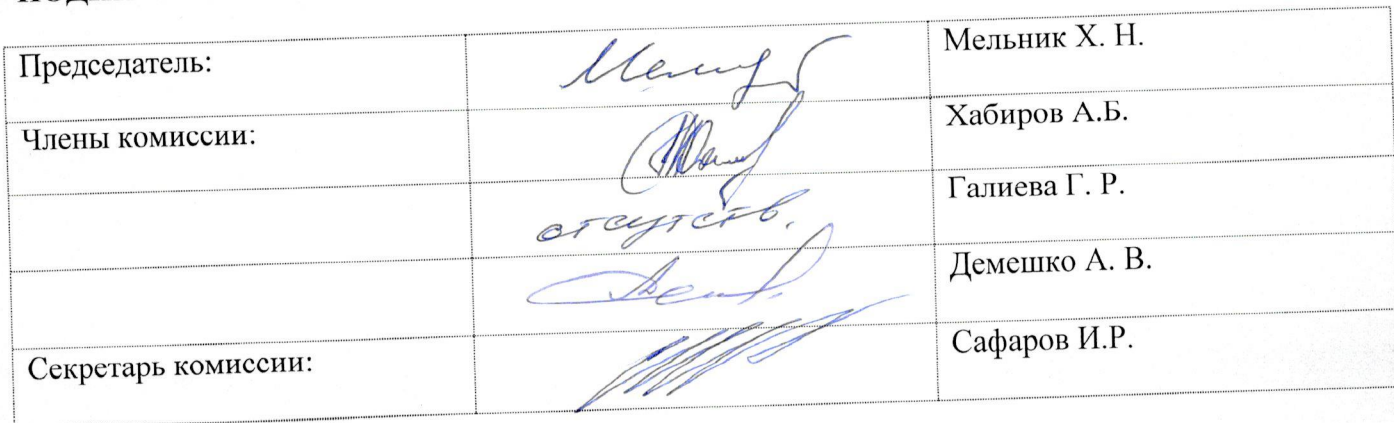 Председатель: Мельник Х. Н.
Члены комиссии: Хабиров А.Б.
отсутств. Галиева Г. Р.
Демешко А. В.
Секретарь комиссии: Сафаров И.Р.